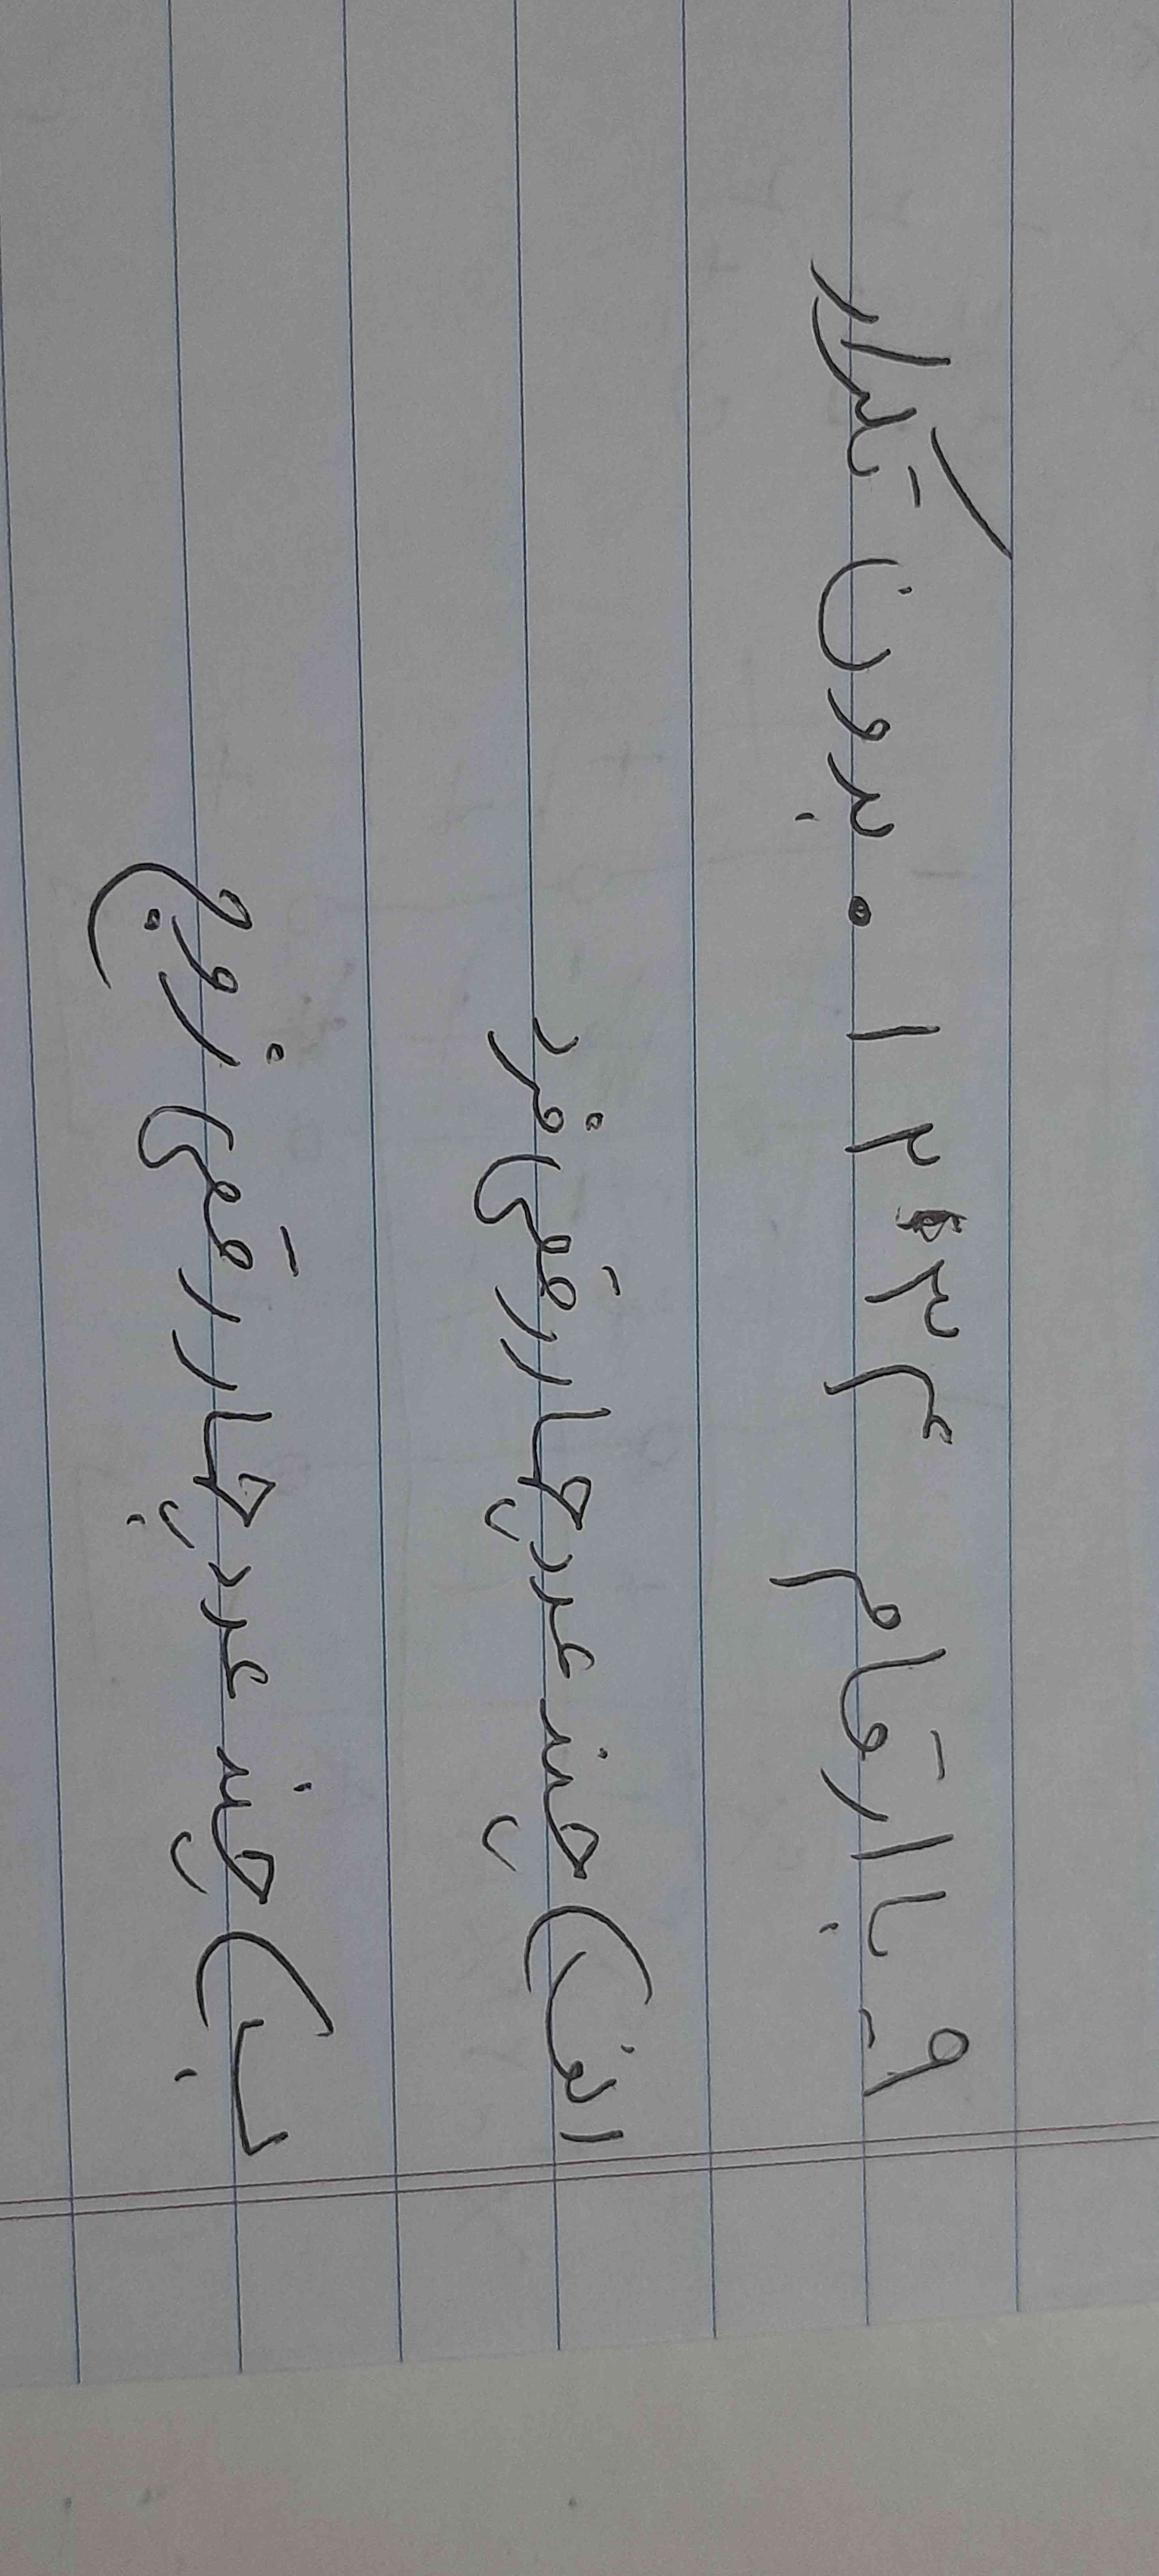 ۹_ با ارقام ۴ ۳ ۲ ۱ ۰ بدون تکرار
الف) چند عدد چهار رقمی فرد
ب) چند عدد چهار رقمی زوج